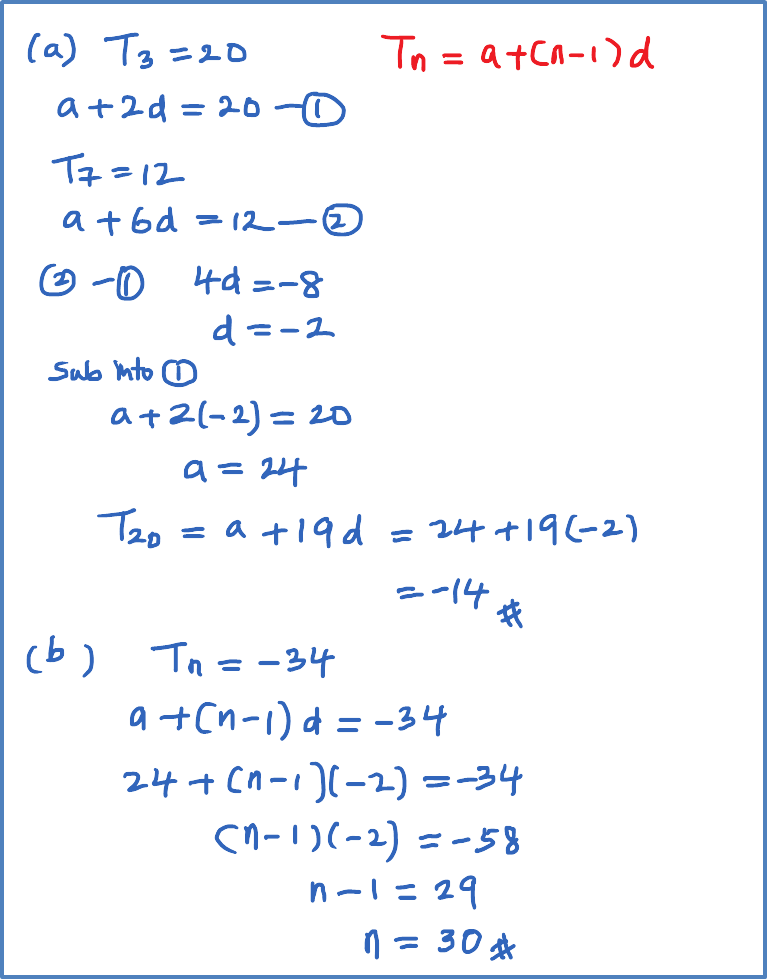 (a) T₃ = 20 Tn = a+(n-1)d
a + 2d = 20 — ①
T₇ = 12
a + 6d = 12 — ②
② - ① 4d = -8
d = -2
Sub into ①
a + 2(-2) = 20
a = 24
T₂₀ = a + 19d = 24 + 19(-2)
= -14 #
(b) Tn = -34
a + (n-1)d = -34
24 + (n-1)(-2) = -34
(n-1)(-2) = -58
n - 1 = 29
n = 30 #